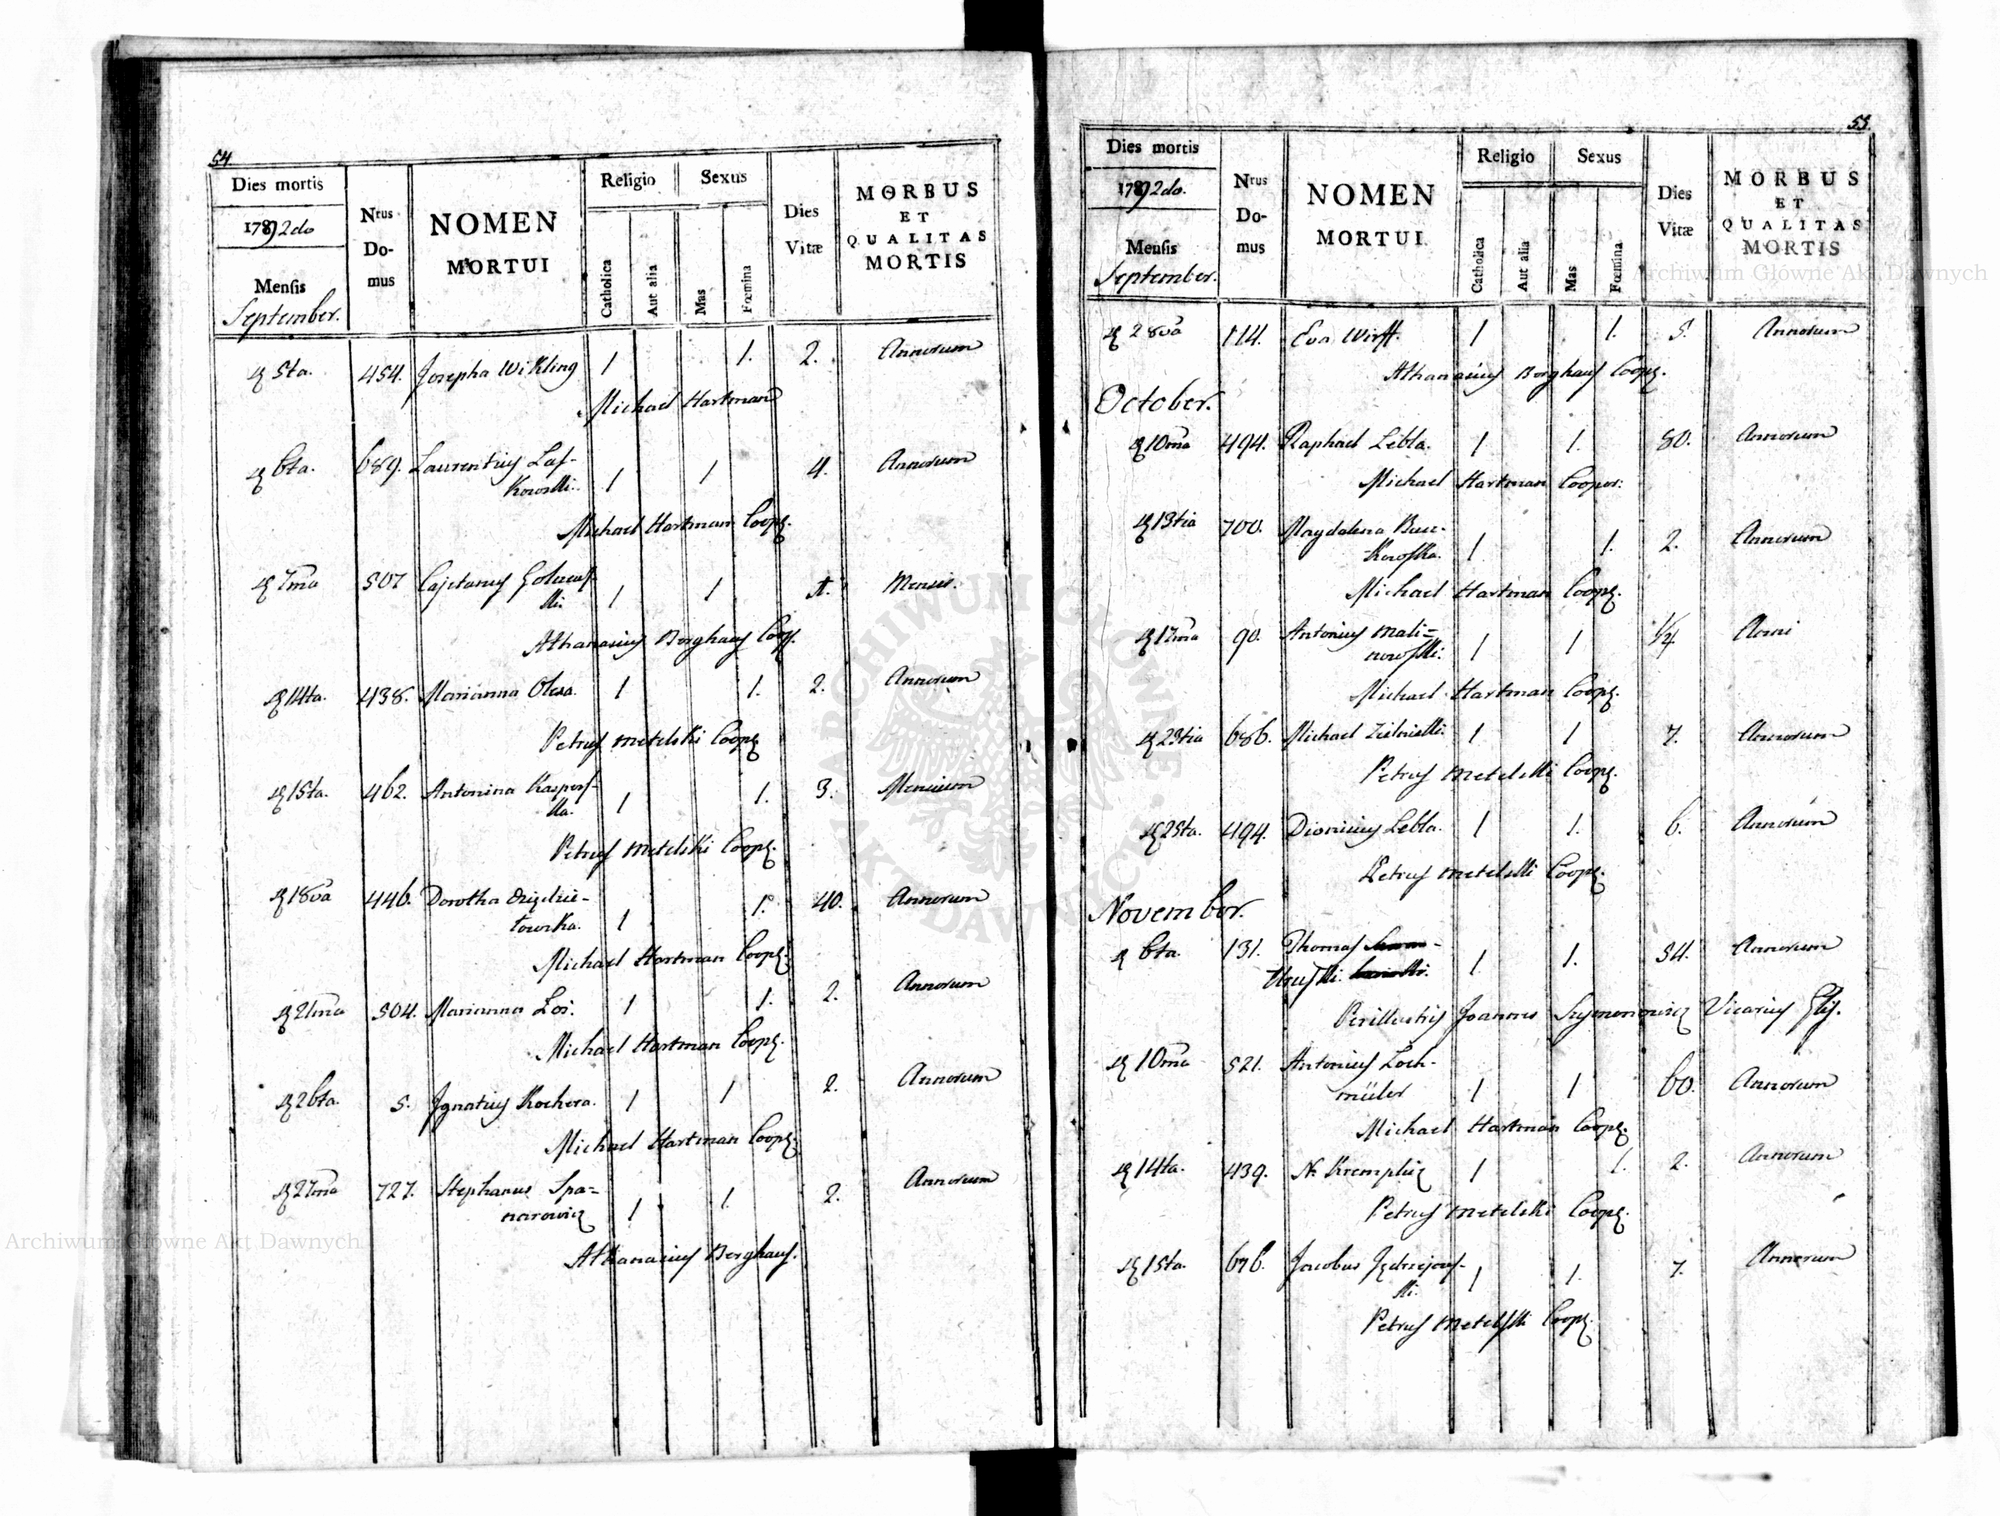 54.
Dies mortis
1792do
Mensis
September.
Nrus
Do-
mus
NOMEN
MORTUI
Religio
Catholica
Aut alia
Sexus
Mas
Fœmina
Dies
Vitæ
MORBUS
ET
QUALITAS
MORTIS
5ta. 454. Josepha Wikling 1 1. 2. Annorum
Michael Hartman
6ta. 689. Laurentius Las-
kowski. 1 1 4. Annorum
Michael Hartman Coop.
7ma 507 Cajetanus
ski 1 1 Mensis.
Athanasius Berghaus Coop.
14ta. 438. Marianna Olexa. 1 1. 2. Annorum
Petrus Metelski Coop.
15ta. 462. Antonina Kaspers-
ka. 1 1. 3. Mensium
Petrus Metelski Coop.
18va 446. Dorotha
1 1. 40. Annorum
Michael Hartman Coop.
21ma 504. Marianna Loi. 1 1. 2. Annorum
Michael Hartman Coop.
26ta. 5. Ignatius Kochera. 1 1 2. Annorum
Michael Hartman Coop.
27ma 727. Stephanus Spa-
narowicz 1 1. 2. Annorum
Athanasius Berghaus.
55.
Dies mortis
1792do.
Mensis
September.
Nrus
Do-
mus
NOMEN
MORTUI
Religio
Catholica
Aut alia
Sexus
Mas
Fœmina
Dies
Vitæ
MORBUS
ET
QUALITAS
MORTIS
28va 114. Eva Wirff. 1 1. 5. Annorum
Athanasius Berghaus Coop.
October.
10ma 494. Raphael Lebla. 1 1. 80. Annorum
Michael Hartman Cooper:
13tia 700. Magdalena
1 1. 2. Annorum
Michael Hartman Coop.
17ma 90. Antonius Mali-
nowski. 1 1 Anni
Michael Hartman Coop.
23tia 686. Michael Zielinski. 1 1 7. Annorum
Petrus Metelski Coop.
25ta. 494. Dionisius Lebla. 1 1. 6. Annorum
Petrus Metelski Coop.
November.
6ta. 131. Thomas
1. 1. 54. Annorum
Perillustris Joannes Szymonowicz Vicarius
10ma 521. Antonius Loch-
müler 1 1 60. Annorum
Michael Hartman Coop.
14ta. 439. N. Kremplicz 1 1. 2. Annorum
Petrus Metelski Coop.
15ta. 676. Jacobus Jędrzejows-
ki. 1 1. 7. Annorum
Petrus Metelski Coop.
ARCHIWUM GŁÓWNE AKT DAWNYCH
Archiwum Główne Akt Dawnych
Archiwum Główne Akt Dawnych